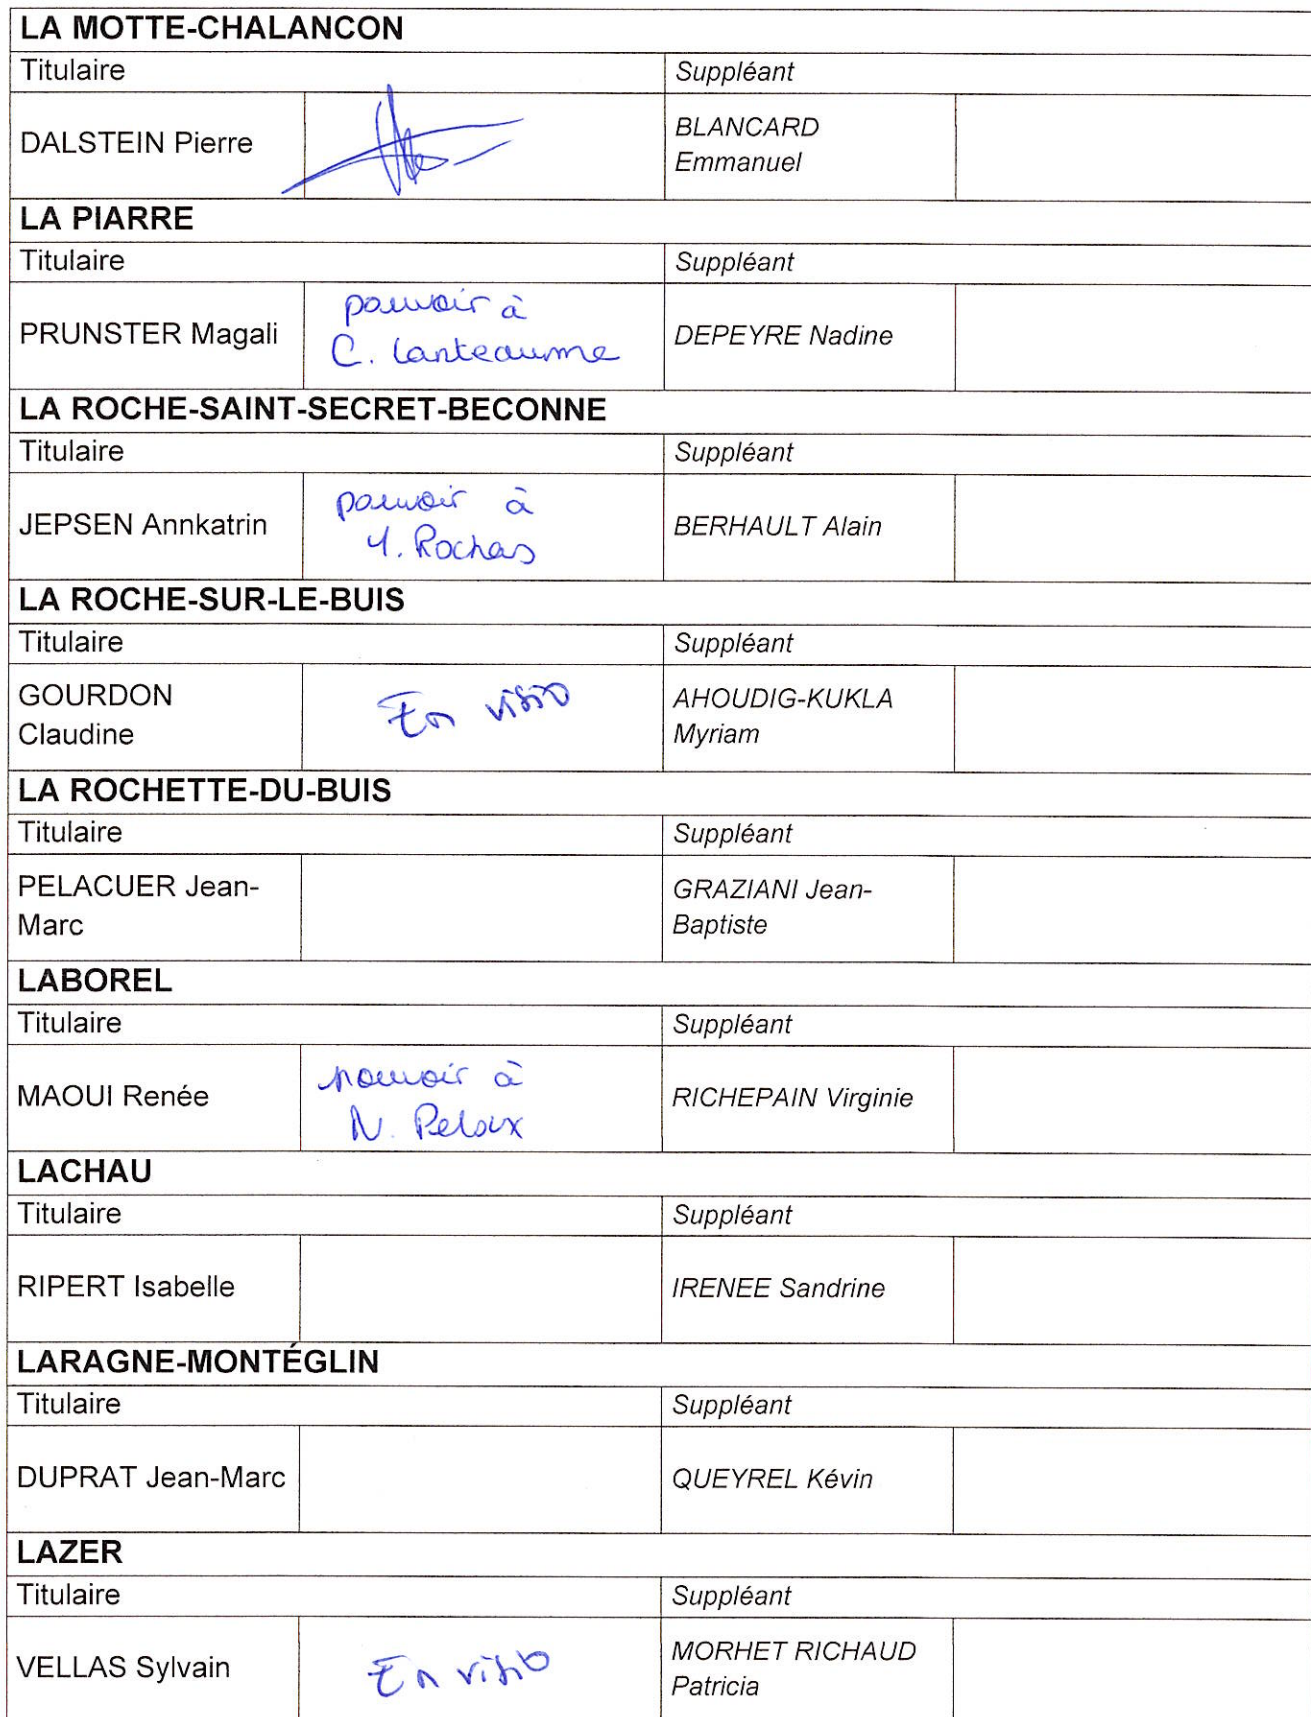 LA MOTTE-CHALANCON
Titulaire Suppléant
DALSTEIN Pierre BLANCARD
Emmanuel
LA PIARRE
Titulaire Suppléant
PRUNSTER Magali pouvoir à
C. Lanteaume DEPEYRE Nadine
LA ROCHE-SAINT-SECRET-BECONNE
Titulaire Suppléant
JEPSEN Annkatrin pouvoir à
Y. Rochas BERHAULT Alain
LA ROCHE-SUR-LE-BUIS
Titulaire Suppléant
GOURDON
Claudine En visio AHOUDIG-KUKLA
Myriam
LA ROCHETTE-DU-BUIS
Titulaire Suppléant
PELACUER Jean-
Marc GRAZIANI Jean-
Baptiste
LABOREL
Titulaire Suppléant
MAOUI Renée pouvoir à
N. Peloux RICHEPAIN Virginie
LACHAU
Titulaire Suppléant
RIPERT Isabelle IRENEE Sandrine
LARAGNE-MONTÉGLIN
Titulaire Suppléant
DUPRAT Jean-Marc QUEYREL Kévin
LAZER
Titulaire Suppléant
VELLAS Sylvain En visio MORHET RICHAUD
Patricia